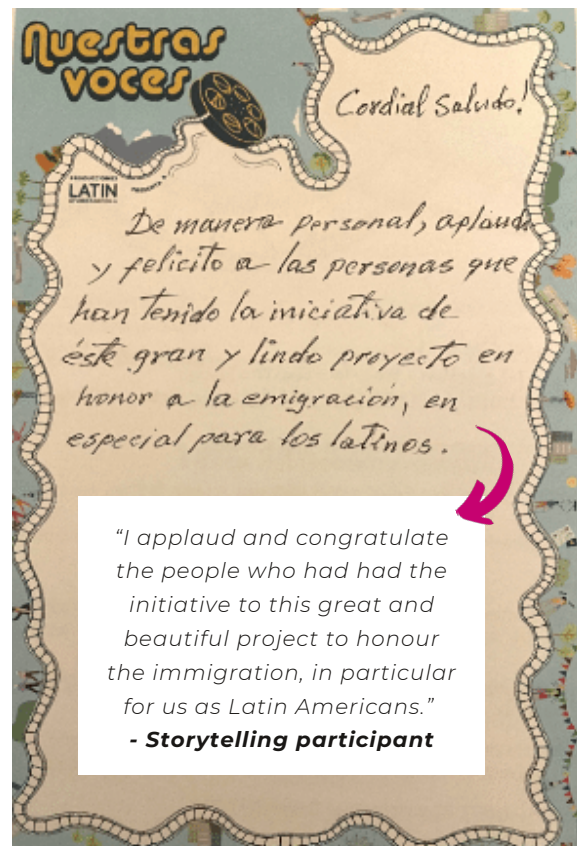 Nuestras
voces
Cordial Saludo!
LATIN
De manera personal, aplaudo
y felicito a las personas que
han tenido la iniciativa de
éste gran y lindo proyecto en
honor a la emigración, en
especial para los latinos.
“I applaud and congratulate
the people who had had the
initiative to this great and
beautiful project to honour
the immigration, in particular
for us as Latin Americans.”
- Storytelling participant